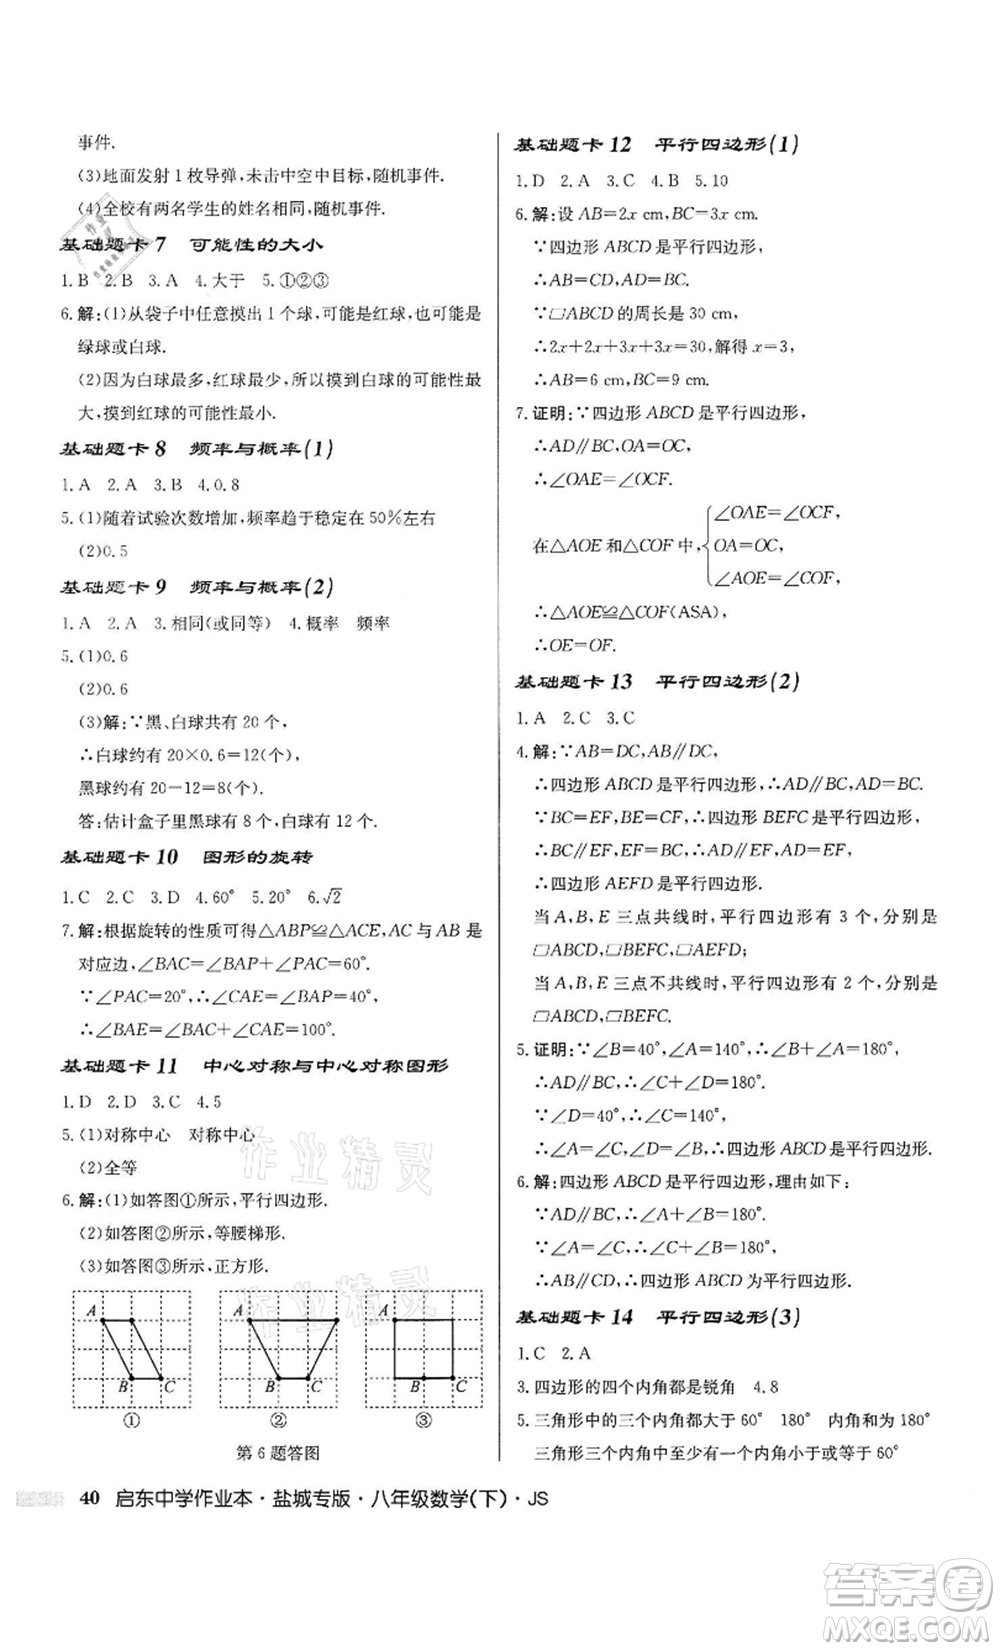 事件.
(3)地面发射1枚导弹,未击中空中目标,随机事件.
(4)全校有两名学生的姓名相同,随机事件.
基础题卡7 可能性的大小
1.B 2.B 3.A 4.大于 5.①②③
6.解:(1)从袋子中任意摸出1个球,可能是红球,也可能是
绿球或白球.
(2)因为白球最多,红球最少,所以摸到白球的可能性最
大,摸到红球的可能性最小.
基础题卡8 频率与概率(1)
1.A 2.A 3.B 4.0.8
5.(1)随着试验次数增加,频率趋于稳定在50%左右
(2)0.5
基础题卡9 频率与概率(2)
1.A 2.A 3.相同(或同等) 4.概率 频率
5.(1)0.6
(2)0.6
(3)解:∵黑、白球共有20个,
∴白球约有20×0.6=12(个),
黑球约有20-12=8(个).
答:估计盒子里黑球有8个,白球有12个.
基础题卡10 图形的旋转
1.C 2.C 3.D 4.60° 5.20° 6.√2
7.解:根据旋转的性质可得△ABP≌△ACE,AC与AB是
对应边,∠BAC=∠BAP+∠PAC=60°.
∵∠PAC=20°,∴∠CAE=∠BAP=40°,
∴∠BAE=∠BAC+∠CAE=100°.
基础题卡11 中心对称与中心对称图形
1.D 2.D 3.C 4.5
5.(1)对称中心 对称中心
(2)全等
6.解:(1)如答图①所示,平行四边形.
(2)如答图②所示,等腰梯形.
(3)如答图③所示,正方形.
A B C
①
A B C
②
A B C
③
第6题答图
基础题卡12 平行四边形(1)
1.D 2.A 3.C 4.B 5.10
6.解:设AB=2x cm,BC=3x cm.
∵四边形ABCD是平行四边形,
∴AB=CD,AD=BC.
∵▱ABCD的周长是30 cm,
∴2x+2x+3x+3x=30,解得x=3.
∴AB=6 cm,BC=9 cm.
7.证明:∵四边形ABCD是平行四边形,
∴AD∥BC,OA=OC,
∴∠OAE=∠OCF.
在△AOE和△COF中,{∠OAE=∠OCF,
OA=OC,
∠AOE=∠COF,
∴△AOE≌△COF(ASA).
∴OE=OF.
基础题卡13 平行四边形(2)
1.A 2.C 3.C
4.解:∵AB=DC,AB∥DC,
∴四边形ABCD是平行四边形,∴AD∥BC,AD=BC.
∵BC=EF,BE=CF,∴四边形BEFC是平行四边形,
∴BC∥EF,BC=EF,∴AD∥EF,AD=EF,
∴四边形AEFD是平行四边形.
当A,B,E三点共线时,平行四边形有3个,分别是
▱ABCD,▱BEFC,▱AEFD;
当A,B,E三点不共线时,平行四边形有2个,分别是
▱ABCD,▱BEFC.
5.证明:∵∠B=40°,∠A=140°,∴∠B+∠A=180°,
∴AD∥BC,∴∠C+∠D=180°.
∵∠D=40°,∴∠C=140°,
∴∠A=∠C,∠B=∠D,∴四边形ABCD是平行四边形.
6.解:四边形ABCD是平行四边形,理由如下:
∵AD∥BC,∴∠A+∠B=180°.
∵∠A=∠C,∴∠C+∠B=180°,
∴AB∥CD,∴四边形ABCD为平行四边形.
基础题卡14 平行四边形(3)
1.C 2.A
3.四边形的四个内角都是锐角 4.8
5.三角形中的三个内角都大于60° 180° 内角和为180°
三角形三个内角中至少有一个内角小于或等于60°
40 启东中学作业本·盐城专版·八年级数学(下)·JS
作业精灵
作业精灵
答案卷
MXQE.COM